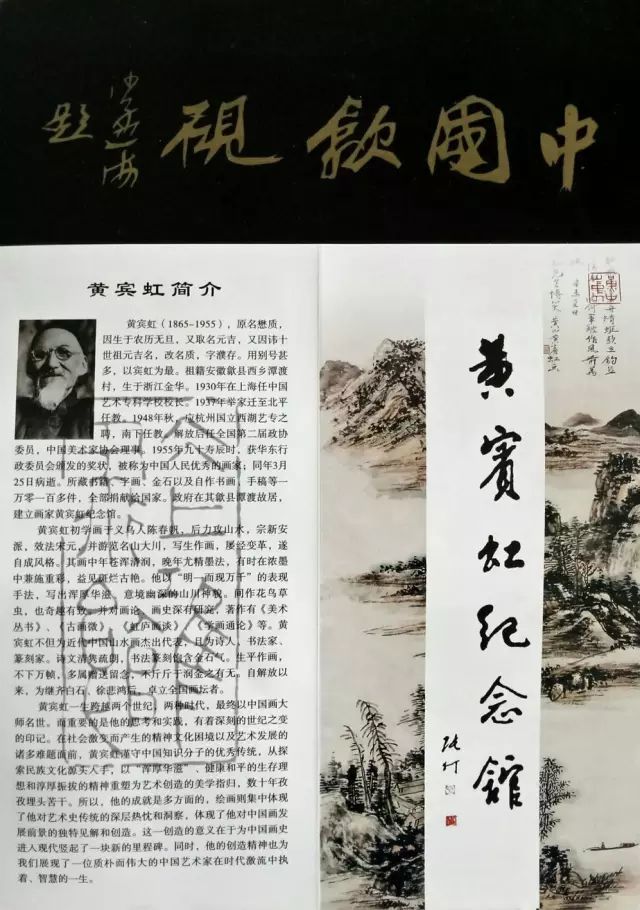 中國歙硯
沙孟海
題
黄宾虹简介
黄宾虹（1865-1955），原名懋质，
因生于农历无旦，又取名元吉，又因讳十
世祖元吉名，改名质，字濮存。用别号甚
多，以宾虹为最。祖籍安徽歙县西乡潭渡
村，生于浙江金华。1930年在上海任中国
艺术专科学校校长。1937年举家迁至北平
任教。1948年秋，应杭州国立西湖艺专之
聘，南下任教。解放后任全国第二届政协
委员，中国美术家协会理事。1955年九十寿辰时，获华东行
政委员会颁发的奖状，被称为中国人民优秀的画家；同年3月
25日病逝。所藏书籍、字画、金石以及自作书画，手稿等一
万零一百多件，全部捐献给国家。政府在其歙县潭渡故居，
建立画家黄宾虹纪念馆。
黄宾虹初学画于义乌人陈春帆，后力攻山水，宗新安
派，效法宋元，并游览名山大川，写生作画，屡经变革，遂
自成风格。其画中年苍浑清润，晚年尤精墨法，有时在浓墨
中兼施重彩，益见斑烂古艳。他以“明一而现万千”的表现
手法，写出浑厚华滋、意境幽深的山川神貌。间作花鸟草
虫，也奇趣有致。并对画论、画史深有研究，著作有《美术
丛书》、《古画微》、《虹庐画谈》、《画学通论》等。黄
宾虹不但为近代中国山水画杰出代表，且为诗人、书法家、
篆刻家。诗文清隽疏朗，书法篆刻饱含金石气。生平作画，
不下万帧，多属赠送留念，不斤斤于润金之有无。自解放以
来，为继齐白石、徐悲鸿后，卓立全国画坛者。
黄宾虹一生跨越两个世纪，两种时代，最终以中国画大
师名世。而重要的是他的思考和实践，有着深刻的世纪之变
的印记。在社会激变而产生的精神文化困境以及艺术发展的
诸多难题面前，黄宾虹谨守中国知识分子的优秀传统，从探
索民族文化源头入手，以“浑厚华滋”、健康和平的生存理
想和淳厚振拔的精神重塑为艺术创造的美学指归，数十年孜
孜埋头苦干。所以，他的成就是多方面的，绘画则集中体现
了他对艺术史传统的深层热忱和洞察，体现了他对中国画发
展前景的独特见解和创造。这一创造的意义在于为中国画史
进入现代竖起了一块新的里程碑。同时，他的创造精神也为
我们展现了一位质朴而伟大的中国艺术家在时代激流中执
着、智慧的一生。
黄賓虹纪念館
张仃